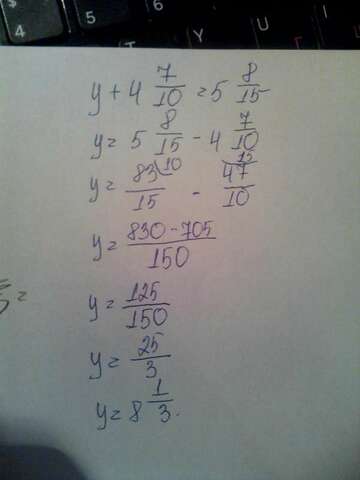 4 5 T Y U
y + 4 7/10 = 5 8/15
y = 5 8/15 - 4 7/10
y = 83/15 \10 - 47/10 \15
y = 830 - 705/150
y = 125/150
y = 25/3
y = 8 1/3.